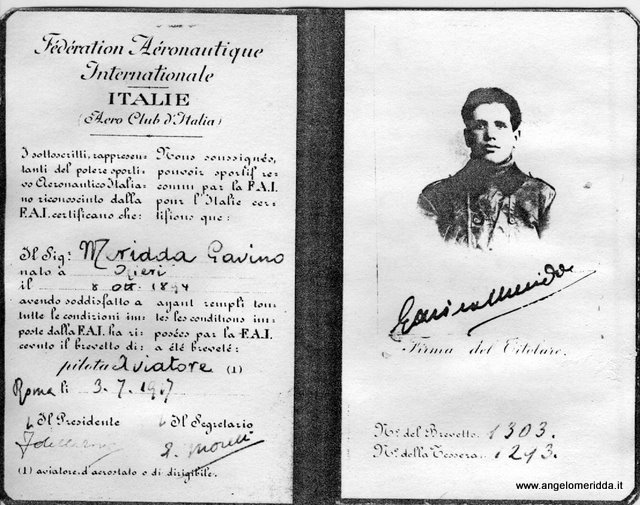 Fédération Aéronautique
Internationale
ITALIE
(Aero Club d'Italia)
I sottoscritti, rappresen-
tanti del potere sporti-
vo Aeronautico Italia-
no riconosciuto dalla
F.A.I. certificano che:
Nous soussignés,
pouvoir sportif re-
connu par la F.A.I.
pour l'Italie cer-
tifions que:
Il Sig: Meridda Gavino
nato a Ozieri
il 8 Ott. 1894
avendo soddisfatto a
tutte le condizioni im-
poste dalla F.A.I. ha ri-
cevuto il brevetto di:
ayant rempli tou-
tes les conditions im-
posées par la F.A.I.
a été breveté:
pilota Aviatore (1)
Roma li 3.7.1917
Il Presidente Il Segretario
(1) aviatore, d'aerostato o di dirigibile.
Gavino Meridda
Firma del Titolare.
No. del Brevetto. 1303.
No. della Tessera. 1293.
www.angelomeridda.it